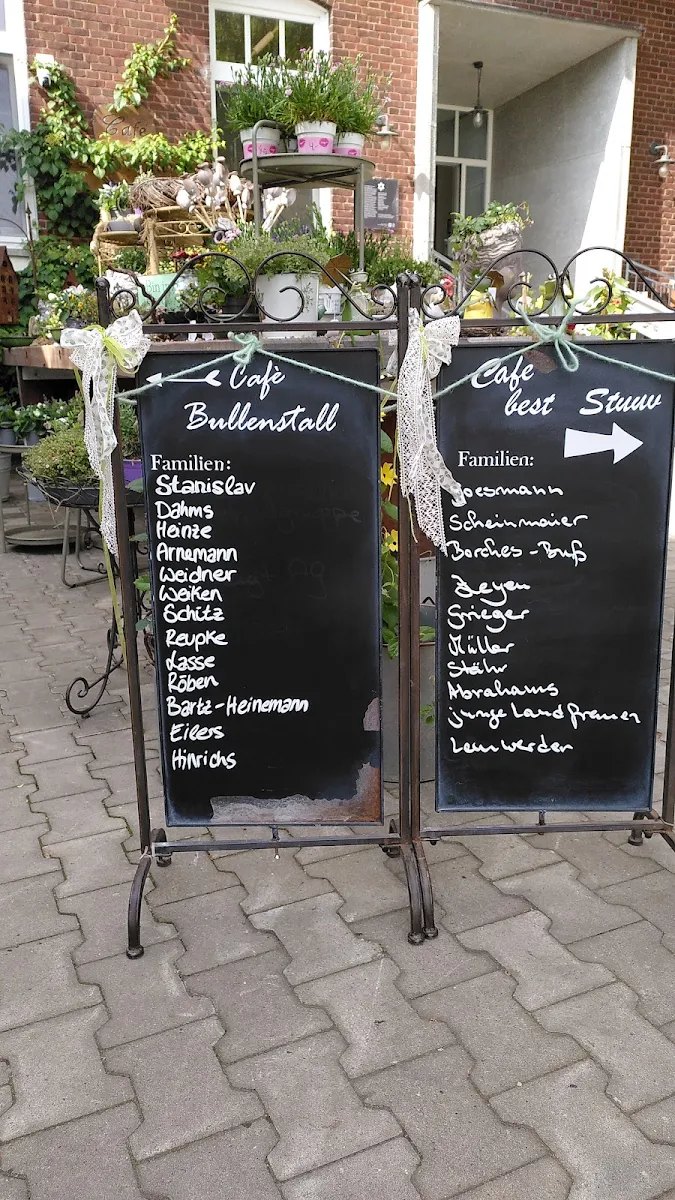 Cafe
4,-
Cafè
Bullenstall
Familien:
Stanislav
Dahms
Heinze
Arnemann
Weidner
Weiken
Schütz
Reupke
Lasse
Röben
Bartz-Heinemann
Eilers
Hinrichs
Cafe
best Stuuv
Familien:
Joesmann
Scheinmaier
Borches-Buß
Zeyen
Grieger
Müller
Stähr
Abrahams
junge Landfrauen